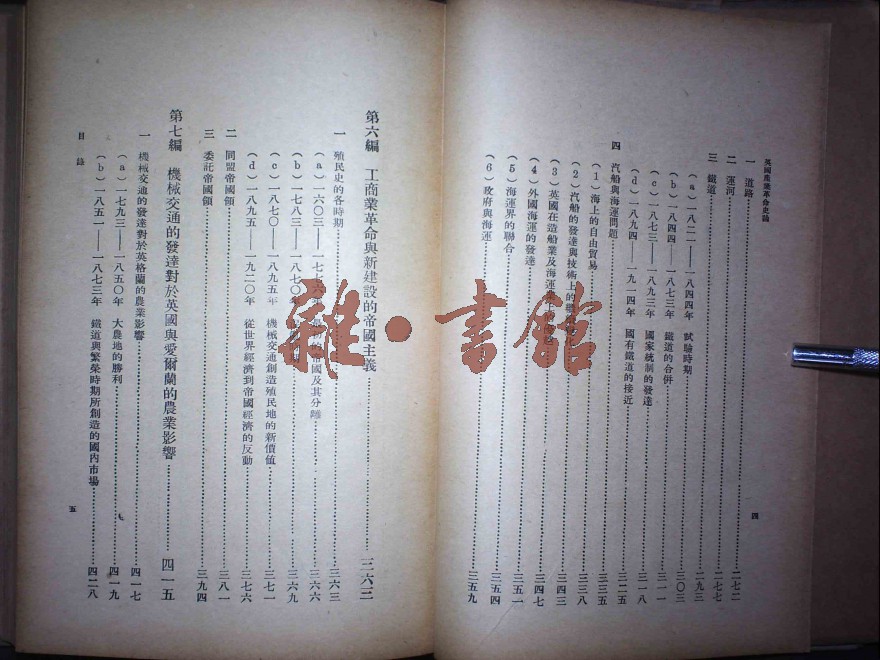 英國產業革命史論
一 道路……二七二
二 運河……二七七
三 鐵道……二九三
(a) 一八二一——一八四四年 試驗時期……三〇三
(b) 一八四四——一八七三年 鐵道的合併……三一一
(c) 一八七三——一八九三年 國家統制的發達……三一八
(d) 一八九四——一九一四年 國有鐵道的接近……三二五
四 汽船與海運問題……三三五
(1) 海上的自由貿易……三三八
(2) 汽船的發達與技術上的……三四三
(3) 英國在造船業及海運業上的……三四七
(4) 外國海運的發達……三五一
(5) 海運界的聯合……三五四
(6) 政府與海運……三五九
四
第六編 工商業革命與新建設的帝國主義……三六三
一 殖民史的各時期……三六三
(a) 一六〇三——一七七六年 的帝國及其分離……三六六
(b) 一七八三——一八七〇年……三六九
(c) 一八七〇——一八九五年 機械交通創造殖民地的新價值……三七一
(d) 一八九五——一九二〇年 從世界經濟到帝國經濟的反動……三七六
二 同盟帝國領……三八一
三 委託帝國領……三九四
第七編 機械交通的發達對於英國與愛爾蘭的農業影響……四一五
一 機械交通的發達對於英格蘭的農業影響……四一七
(a) 一七九三——一八五〇年 大農地的勝利……四一九
(b) 一八五一——一八七三年 鐵道與繁榮時期所創造的國內市場……四二八
目錄
五
雜·書館